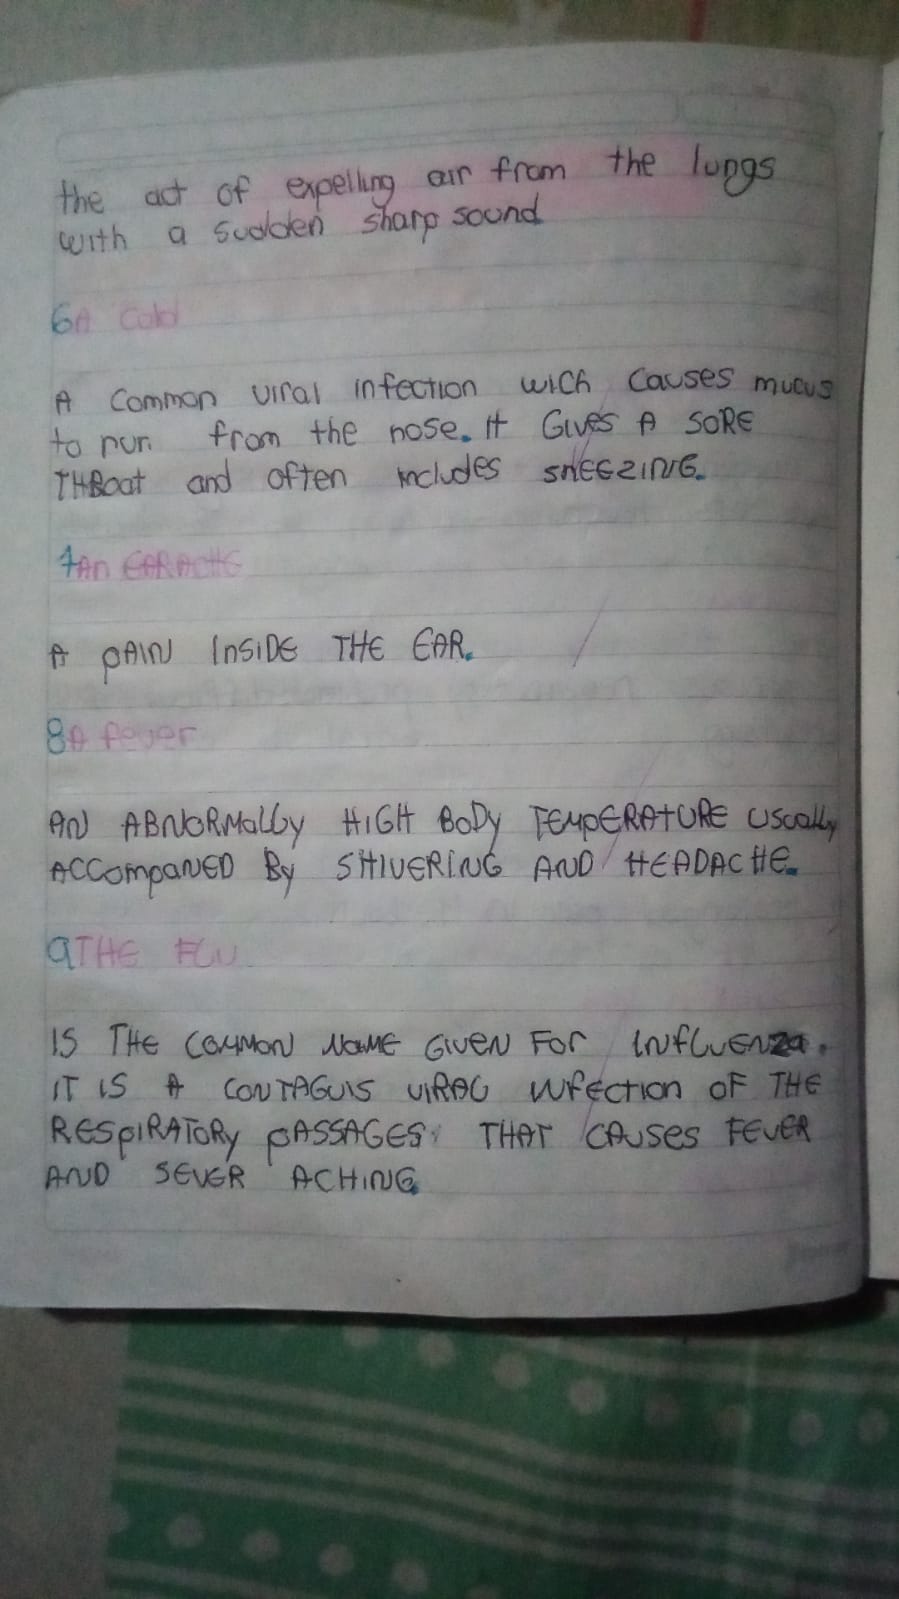 the act of expelling air from the lungs
with a sudden sharp sound
6A cold
A common viral infection wich causes mucus
to run from the nose. It Gives A SORE
THRoat and often includes SNEEZING.
7An EARACHE
A pAIN INSIDE THE EAR.
8A fever
AN ABNORMALLY HIGH BODY TEMPERATURE Usually
ACCompaNED By SHIVERING AND HEADACHE.
9THE FLU
IS THE COMMON NAME GIVEN FOR INFLUENza.
IT IS A CONTAGUIS VIRAL INFECTION OF THE
RESPIRATORY PASSAGES THAT CAUSES FEVER
AND SEVER ACHING.